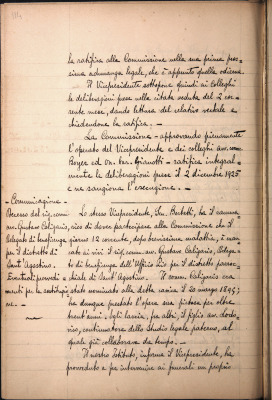 la ratifica alla Commissione nella sua prima pros-
sima adunanza legale, che è appunto quella odierna.
Il Vicepresidente sottopone quindi ai colleghi
le deliberazioni prese nella citata seduta del 2 cor-
rente mese, dando lettura del relativo verbale e
chiedendone la ratifica. -
La Commissione - approvando pienamente
l'operato del Vicepresidente e dei colleghi avv. comm.
ed On. bar. Gianotti - ratifica integral-
mente le deliberazioni prese il 2 dicembre 1925
e ne sanziona l'esecuzione. -
- Comunicazione. -
Decesso del sig. comm.
avv. Gustavo Caligaris,
Delegato di beneficenza
per il distretto di
Sant'Agostino.
Eventuali provvedi-
menti per la sostituzio-
ne. -
Lo stesso Vicepresidente, Sen. Berbetti, ha il ramma-
rico di dover partecipare alla Commissione che il
giorno 12 corrente, dopo brevissima malattia, è man-
cato ai vivi il sig. comm. avv. Gustavo Caligaris, Delega-
to di beneficenza dell'Ufficio Pio per il distretto parroc-
chiale di Sant'Agostino. - Il comm. Caligaris era
stato nominato alla detta carica il 20 marzo 1895;
ha dunque prestato l'opera sua pietosa per oltre
trent'anni. Egli lascia, fra altri, il figlio avv.
continuatore dello Studio legale paterno, al
quale già collaborava da tempo. -
Il nostro Istituto, informa il Vicepresidente, ha
provveduto a far intervenire ai funerali un proprio